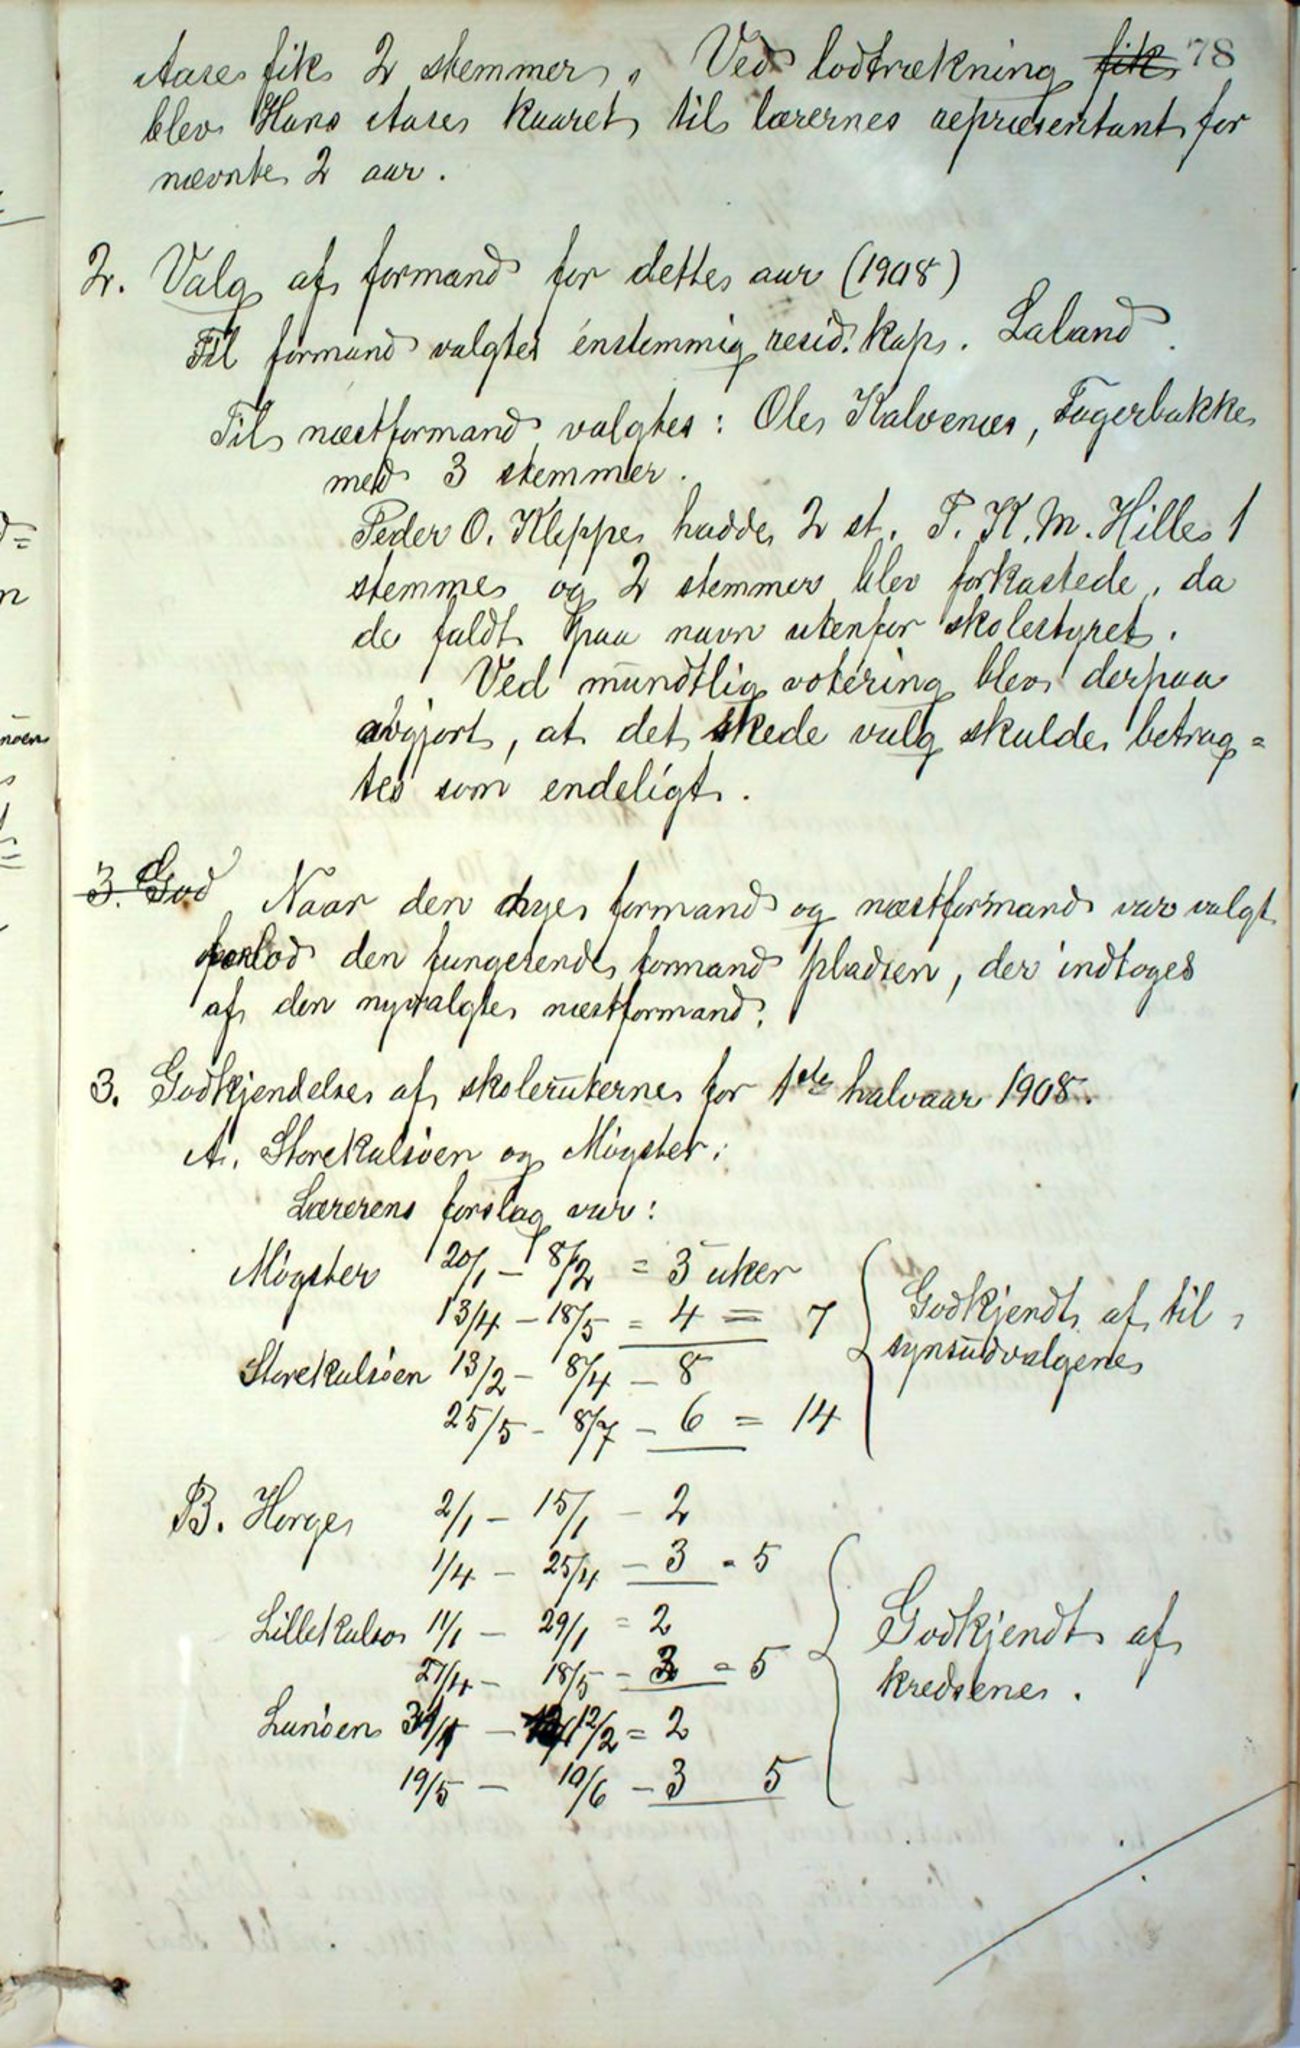 Aase fik 2 stemmer. Ved lodtrækning fik 78
blev Hans Aase kaaret til lærernes repræsentant for
nævnte 2 aar.
2. Valg af formand for dette aar (1908)
Til formand valgtes énstemmig resid. kap. Laland.
Til næstformand valgtes: Ole Kalvenæs, Fagerbakke
med 3 stemmer.
Peder O. Kleppe hadde 2 st. P. K. M. Hille 1
stemme og 2 stemmer blev forkastede, da
de faldt paa navn utenfor skolestyret.
Ved mundtlig votéring blev derpaa
avgjort, at det skede valg skulde betrag=
tes som endeligt.
3. God Naar den nye formand og næstformand var valgt
forlod den fungerende formand pladsen, der indtoges
af den nyvalgte næstformand.
3. Godkjendelse af skoleruterne for 1ste halvaar 1908.
A. Storekalsøen og Møgster:
Lærerens forslag var:
Møgster 20/1 - 8/2 = 3 uker
13/4 - 18/5 = 4 = 7
Godkjendt af til=
synsudvalgene
Storekalsøen 13/2 - 8/4 - 8
25/5 - 8/7 - 6 = 14
B. Horge 2/1 - 15/1 - 2
1/4 - 25/4 - 3 = 5
Lillekalsø 11/1 - 29/1 = 2
27/4 - 18/5 - 3 = 5
Godkjendt af
kredsene.
Lunøen 31/1 - 12/2 = 2
19/5 - 10/6 - 3 5